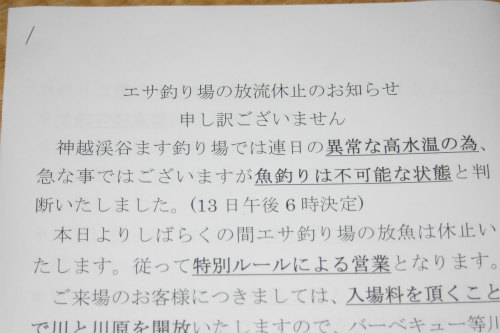 エサ釣り場の放流休止のお知らせ
申し訳ございません
神越渓谷ます釣り場では連日の異常な高水温の為、
急な事ではございますが魚釣りは不可能な状態と判
断いたしました。(13日午後6時決定)
本日よりしばらくの間エサ釣り場の放魚は休止い
たします。従って特別ルールによる営業となります。
ご来場のお客様につきましては、入場料を頂くこと
で川と川原を開放いたしますので、バーベキュー等川